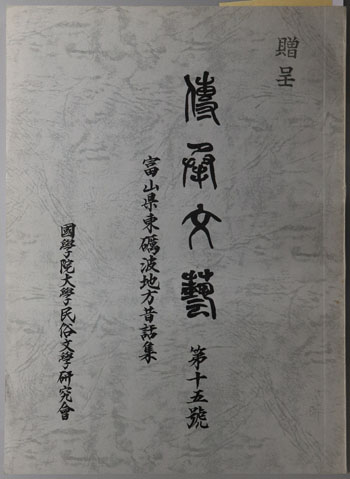 贈呈
傳承文藝 第十五號
富山県東礪波地方昔話集
國學院大學民俗文學研究會